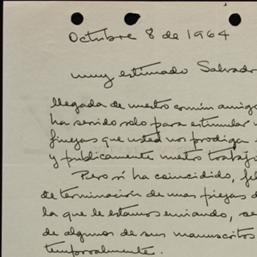 Octubre 8 de 1964
muy estimado Salvador
llegada de nuestro común amigo
ha servido solo para estimular
finezas que usted nos prodiga
y publicamente
Pero si ha coincidido,
de terminación de unas piezas d
la que le estamos enviando, se
de algunos de sus manuscritos
temporalmente.